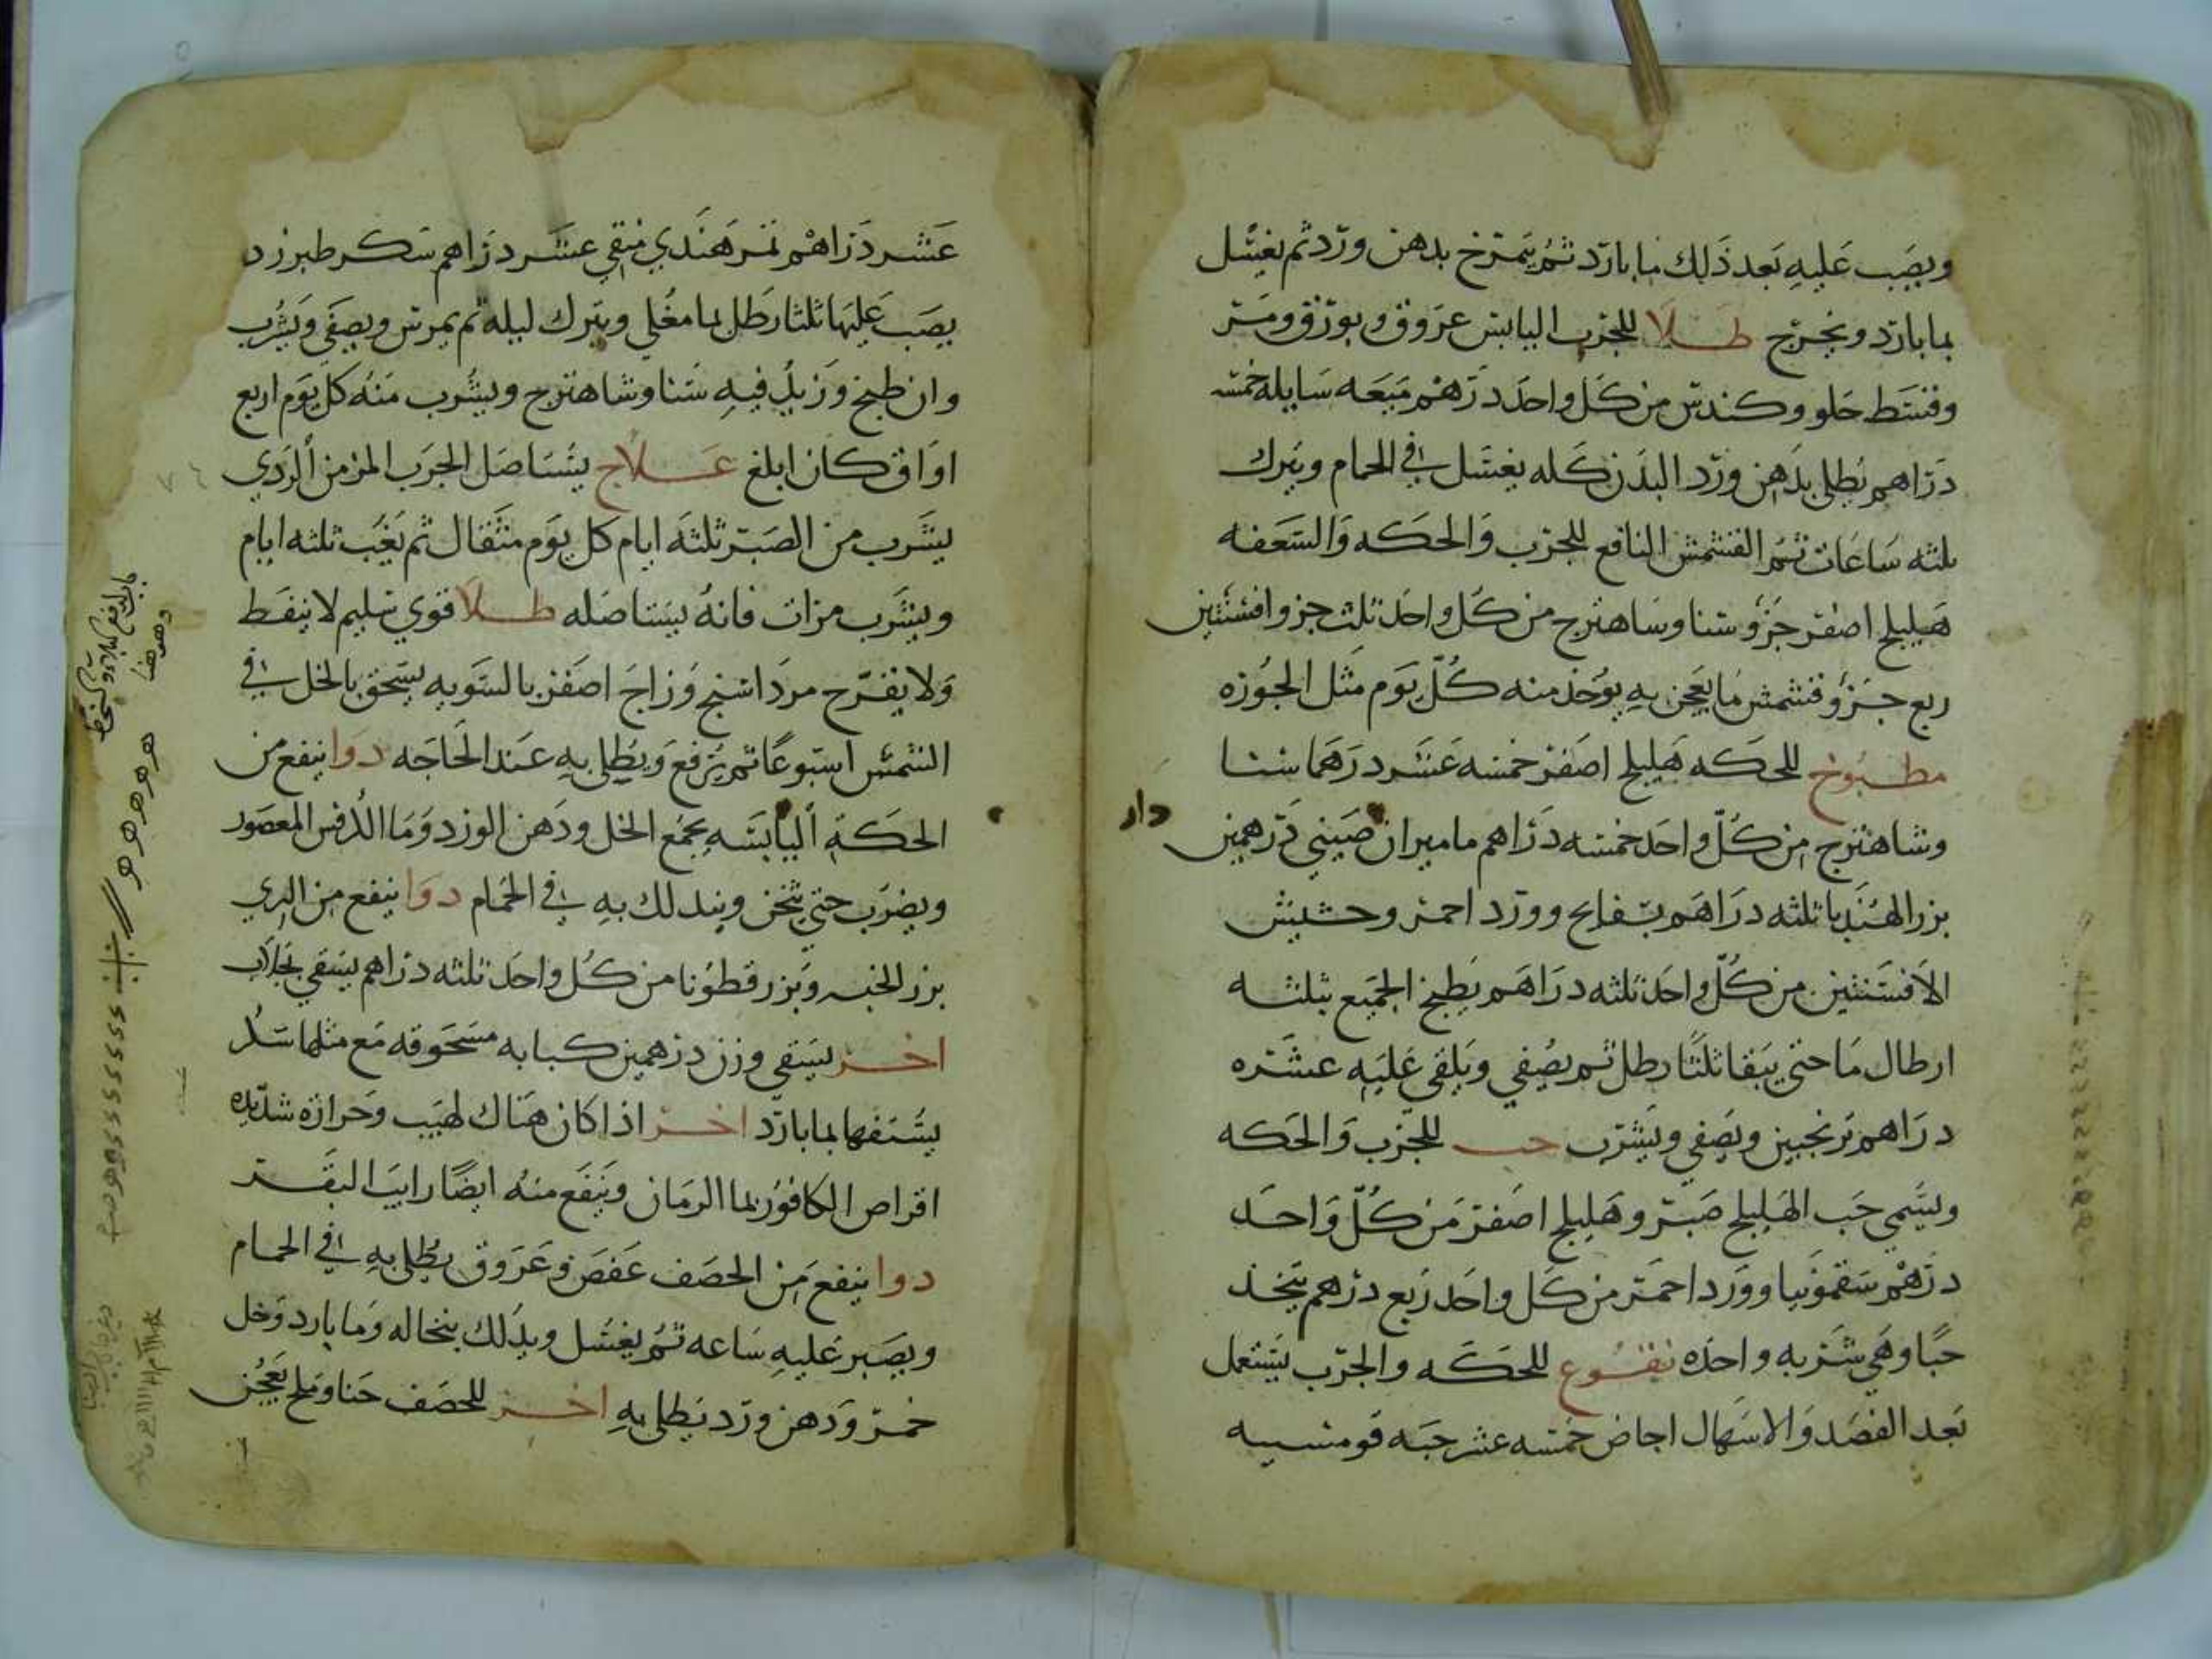 ويصب عليه بعد ذلك ما بارد ثم يتمرخ بدهن ورد ثم يغسل
بما بارد ويخرج طلا للجرب اليابس عروق وبورق ومر
وقسط حلو وكندس من كل واحد درهم ميعه سايله خمسه
دراهم يطلى بدهن ورد البدن كله يغسل في الحمام ويترك
ثلثه ساعات ثم القشمش النافع للجرب والحكه والسعفه
هليلج اصفر جزو سنا وساهترج من كل واحد ثلث جزو افسنتين
ربع جزو قشمش ما يعجن به يوخذ منه كل يوم مثل الجوزه
مطبوخ للحكه هليلج اصفر خمسه عشر درهما سنا
وشاهترج من كل واحد خمسه دراهم ماميران صيني درهمين
بزر الهندبا ثلثه دراهم بسفايج وورد احمر وحشيش
الافسنتين من كل واحد ثلثه دراهم يطبخ الجميع بثلثه
ارطال ما حتى يبقا ثلثا رطل ثم يصفي ويلقي عليه عشره
دراهم ترنجبين ويصفي ويشرب حب للجرب والحكه
ويسمي حب الهليلج صبر وهليلج اصفر من كل واحد
درهم سقمونيا وورد احمر من كل واحد ربع درهم يتخذ
حبا وهي شربه واحده نقوع للحكه والجرب يستعمل
بعد الفصد والاسهال اجاص خمسه عشر حبه
عشر دراهم تمر هندي منقي عشر دراهم سكر طبرزد
يصب عليها ثلثا رطل ما مغلي ويترك ليله ثم يمرس ويصفي ويشرب
وان طبخ وزيد فيه سنا وشاهترج ويشرب منه كل يوم اربع
اواق كان ابلغ علاج يستاصل الجرب المزمن الردي
يشرب من الصبر ثلثه ايام كل يوم مثقال ثم يغب ثلثه ايام
ويشرب مرات فانه يستاصله طلا قوي سليم لا ينفط
ولا يقرح مرداسنج وزاج اصفر بالسويه يسحق بالخل في
الشمس اسبوعا ثم يرفع ويطلى به عند الحاجه دوا ينفع من
الحكة اليابسه يجمع الخل ودهن الورد وما الكرفس المعصور
ويضرب حتي يثخن ويتدلك به في الحمام دوا ينفع من الشري
بزر الخس وبزر قطونا من كل واحد ثلثه دراهم يسقي بجلاب
اخر يسقي وزن درهمين كبابه مسحوقه مع مثلها سكر
يستفها بما بارد اخر اذا كان هناك لهيب وحراره شديده
اقراص الكافور بما الرمان وينفع منه ايضا رايب البقر
دوا ينفع من الحصف عفص وعروق يطلى به في الحمام
ويصبر عليه ساعه ثم يغسل ويدلك بنخاله وما بارد وخل
خمر ودهن ورد يطلى به اخر للحصف حنا وملح يعجن